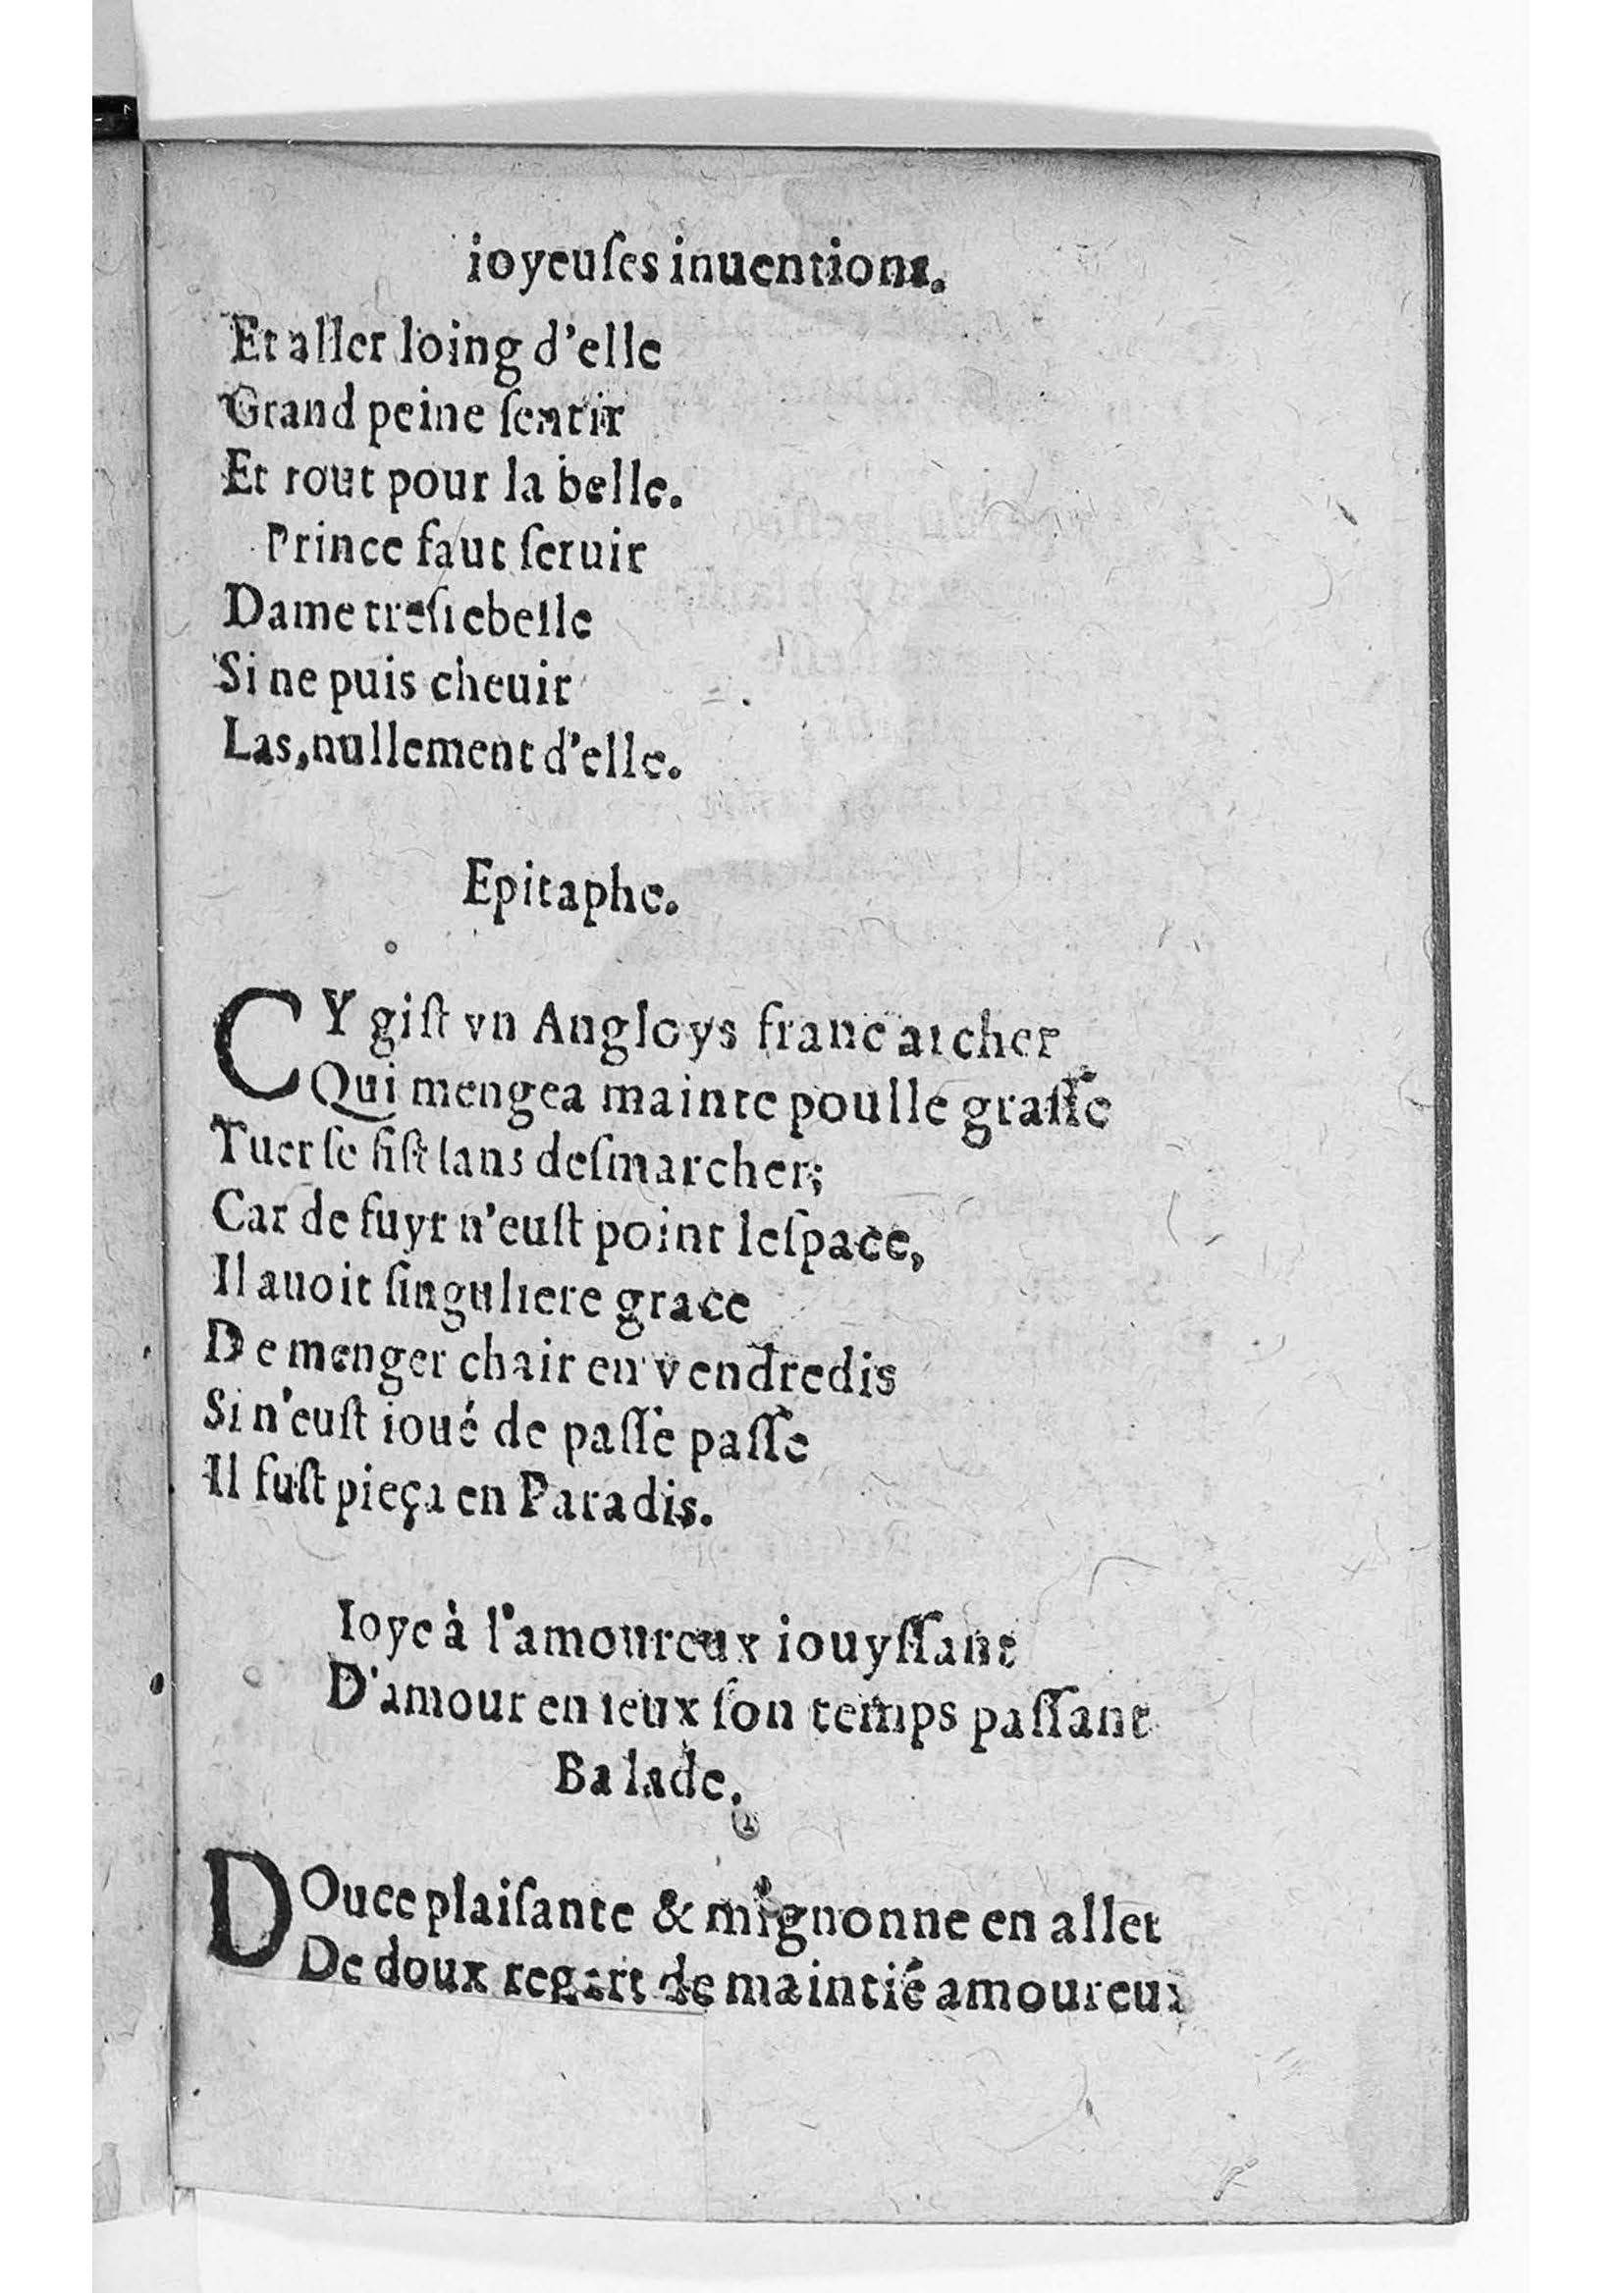 ioyeuſes inuentions.
Et aller loing d'elle
Grand peine ſentir
Et tout pour la belle.
Prince faut ſeruir
Dame treſiebelle
Si ne puis cheuir
Las, nullement d'elle.
Epitaphe.
CY giſt vn Angloys franc archer
Qui mengea mainte poulle graſſe
Tuer ſe fiſt ſans deſmarcher;
Car de fuyr n'euſt point leſpace,
Il auoit ſinguliere grace
De menger chair en vendredis
Si n'euſt ioué de paſſe paſſe
Il fuſt pieça en Paradis.
Ioye à l'amoureux iouyſſant
D'amour en ieux ſon temps paſſant
Balade.
DOuce plaiſante & mignonne en aller
De doux regart de maintié amoureux